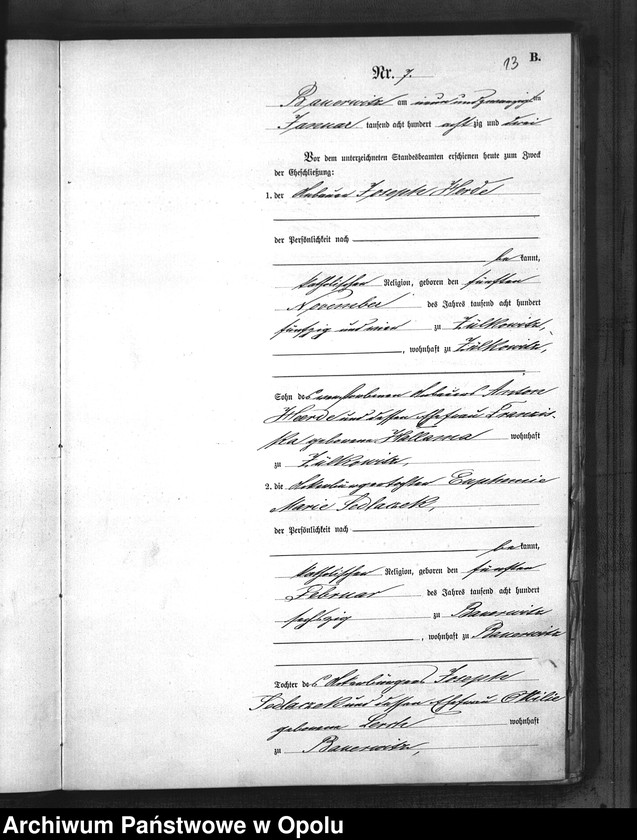 13 B.
Nr. 7.
Bauerwitz am neun und zwanzigsten
Januar tausend acht hundert achtzig und zwei
Vor dem unterzeichneten Standesbeamten erschienen heute zum Zweck
der Eheschließung:
1. der Anbauer Joseph Herde
der Persönlichkeit nach
bekannt,
katholischen Religion, geboren den fünften
November des Jahres tausend acht hundert
fünfzig und vier zu Zülkowitz,
, wohnhaft zu Zülkowitz,
Sohn des verstorbenen Anbauers Anton
Herde und dessen Ehefrau Franzis-
ka geborenen Hallama wohnhaft
zu Zülkowitz,
2. die Ackerbürgertochter Euphemie
Marie Sedlaczek,
der Persönlichkeit nach
bekannt,
katholischen Religion, geboren den fünften
Februar des Jahres tausend acht hundert
sechszig zu Bauerwitz
, wohnhaft zu Bauerwitz
Tochter des Ackerbürgers Joseph
Sedlaczek und dessen Ehefrau Ottilie
geborenen wohnhaft
zu Bauerwitz,
Archiwum Państwowe w Opolu